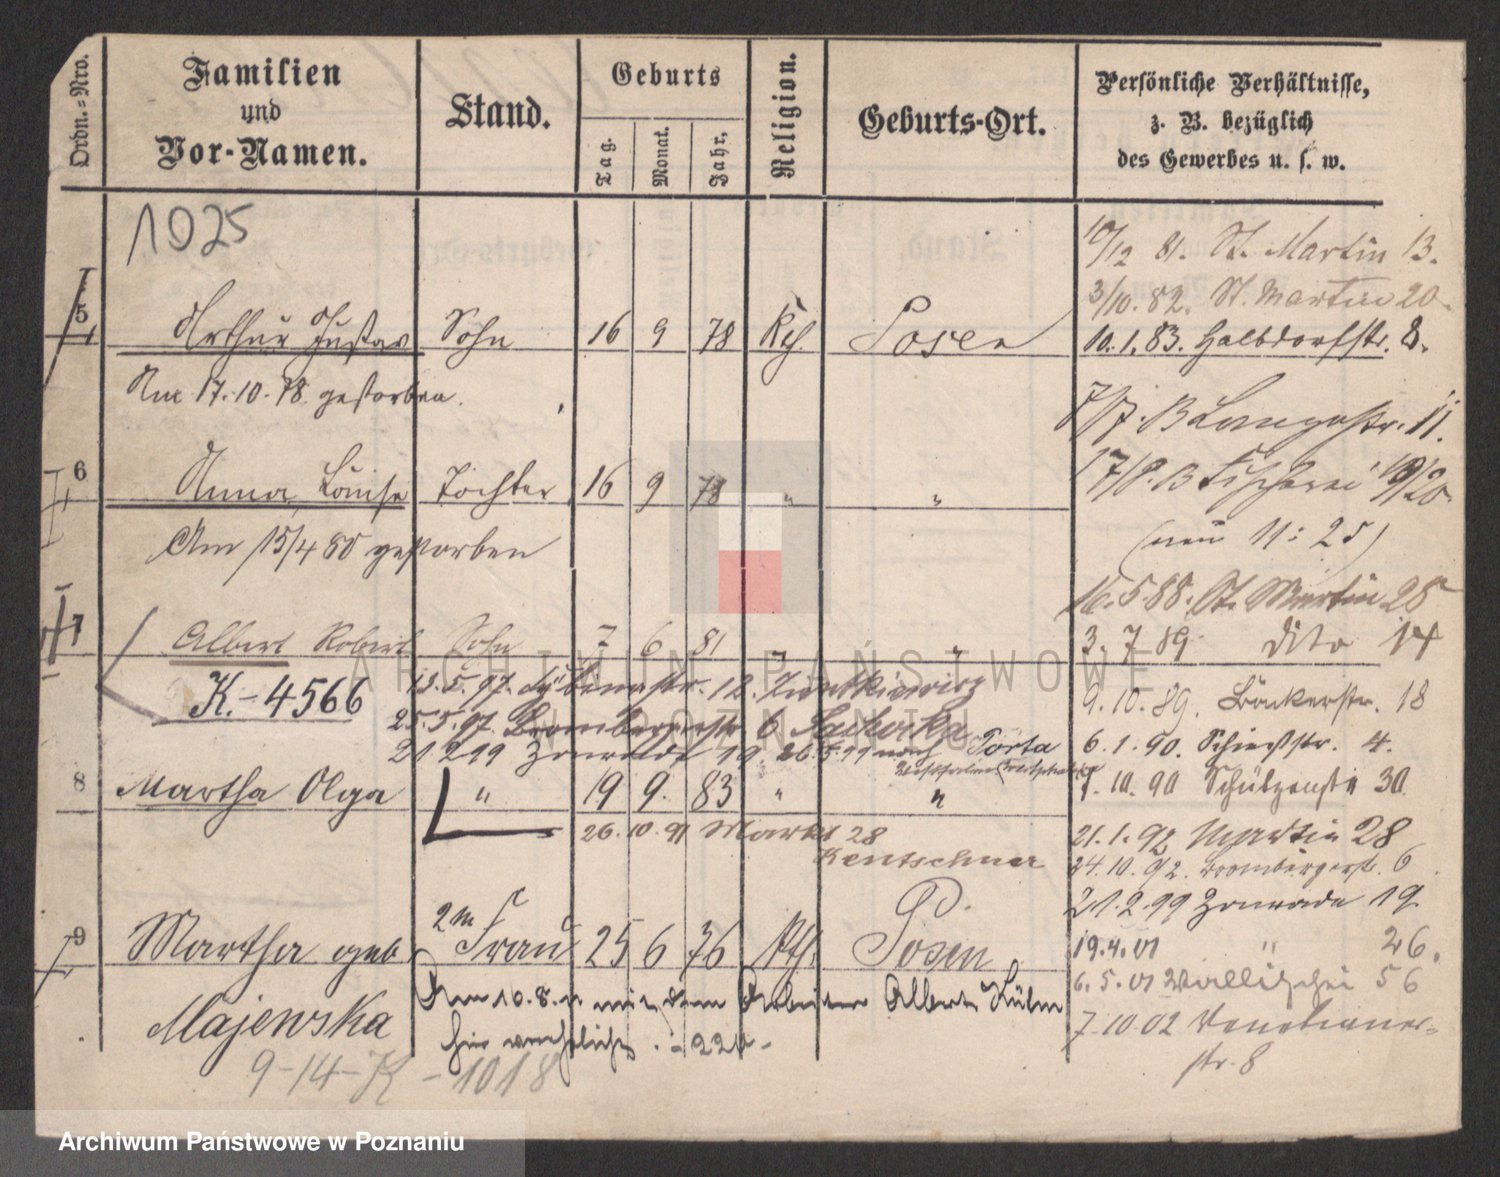 Ordn.=Nro.
Familien
und
Vor-Namen.
Stand.
Geburts
Tag.
Monat.
Jahr.
Religion.
Geburts-Ort.
Persönliche Verhältnisse,
z. B. bezüglich
des Gewerbes u. s. w.
1025
5 Arthur Gustav Sohn 16 9 78 Kth. Posen
Am 17.10.78 gestorben.
6 Anna Louise Tochter 16 9 78 " "
Am 15/4 80 gestorben
7 Albert Robert Sohn 7 6 81 " "
K.-4566
13.5.97. 12.
25.5.97 Brombergerstr 6
21 2 99 19. 26.5.99 nach
8 Martha Olga " 19 9. 83 " "
26.10.91 Markt 28
Kentschner
9 Martha geb 2te Frau 25 6 76 Kth. Posen
Majewska
Am 10.8. mit dem Arbeiter Albert
9-14-K-1018
10/12 81. St. Martin 13.
3/10.82. St. Martin 20
10.1.83. Halbdorfstr. 8.
7/7. B Langestr. 11.
17/8. B Fischerei 19/20
(neu 11: 25)
16.5.88. St. Martin 28
3.7.89 dito 14
9.10.89. Bäckerstr. 18
6.1.90. Schießstr. 4.
7.10.90 Schützenstr 30
21.1.92 Martin 28
24.10.92. Brombergerst. 6
21.2.99 19
19.4.01 " 26.
6.5.01 Wallischei 56
7.10.02 Venetianer-
str. 8
ARCHIWUM PAŃSTWOWE
W POZNANIU
Archiwum Państwowe w Poznaniu